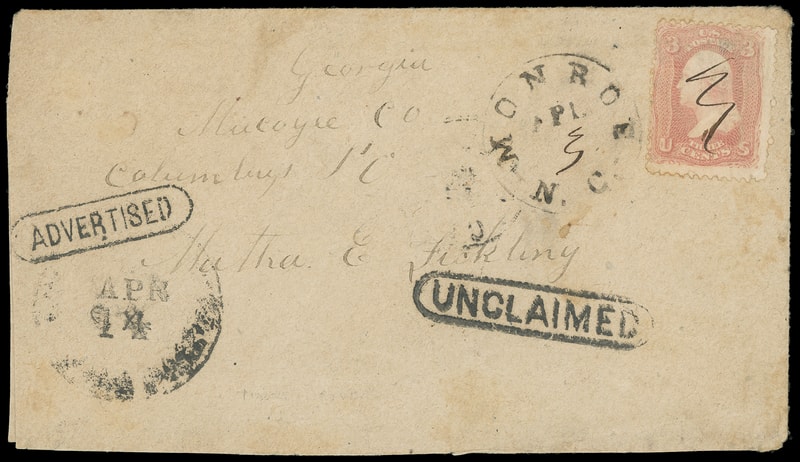 Georgia
Mucogie Co
Columbus P O
Martha E Fickling
MONROE
N. C.
APL
3
3 U.S. POSTAGE 3
U THREE CENTS S
ADVERTISED
APR
14
UNCLAIMED